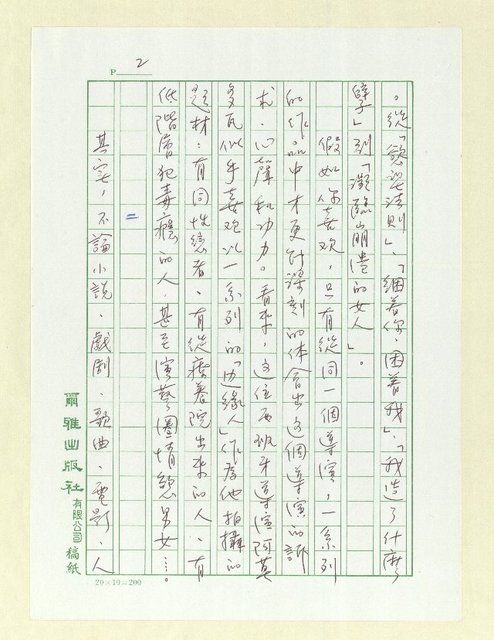 P 2
。從「慾望法則」、「綑著你，困著我」、「我造了什麼
孽」到「瀕臨崩潰的女人」。
假如你喜欢，只有從同一個導演，一系列
的作品中才更能深刻的体會出這個導演的訴
求、心聲和功力。看來，這位西班牙導演阿莫
多瓦似乎喜欢以一系列的「边緣人」作為他拍攝的
題材：有同性戀者、有從療養院出來的人、有
低階層犯毒癮的人，甚至演藝圈情慾男女……。
二
其实，不論小說、戲劇、歌曲、電影、人
爾雅出版社有限公司稿紙
20×10=200